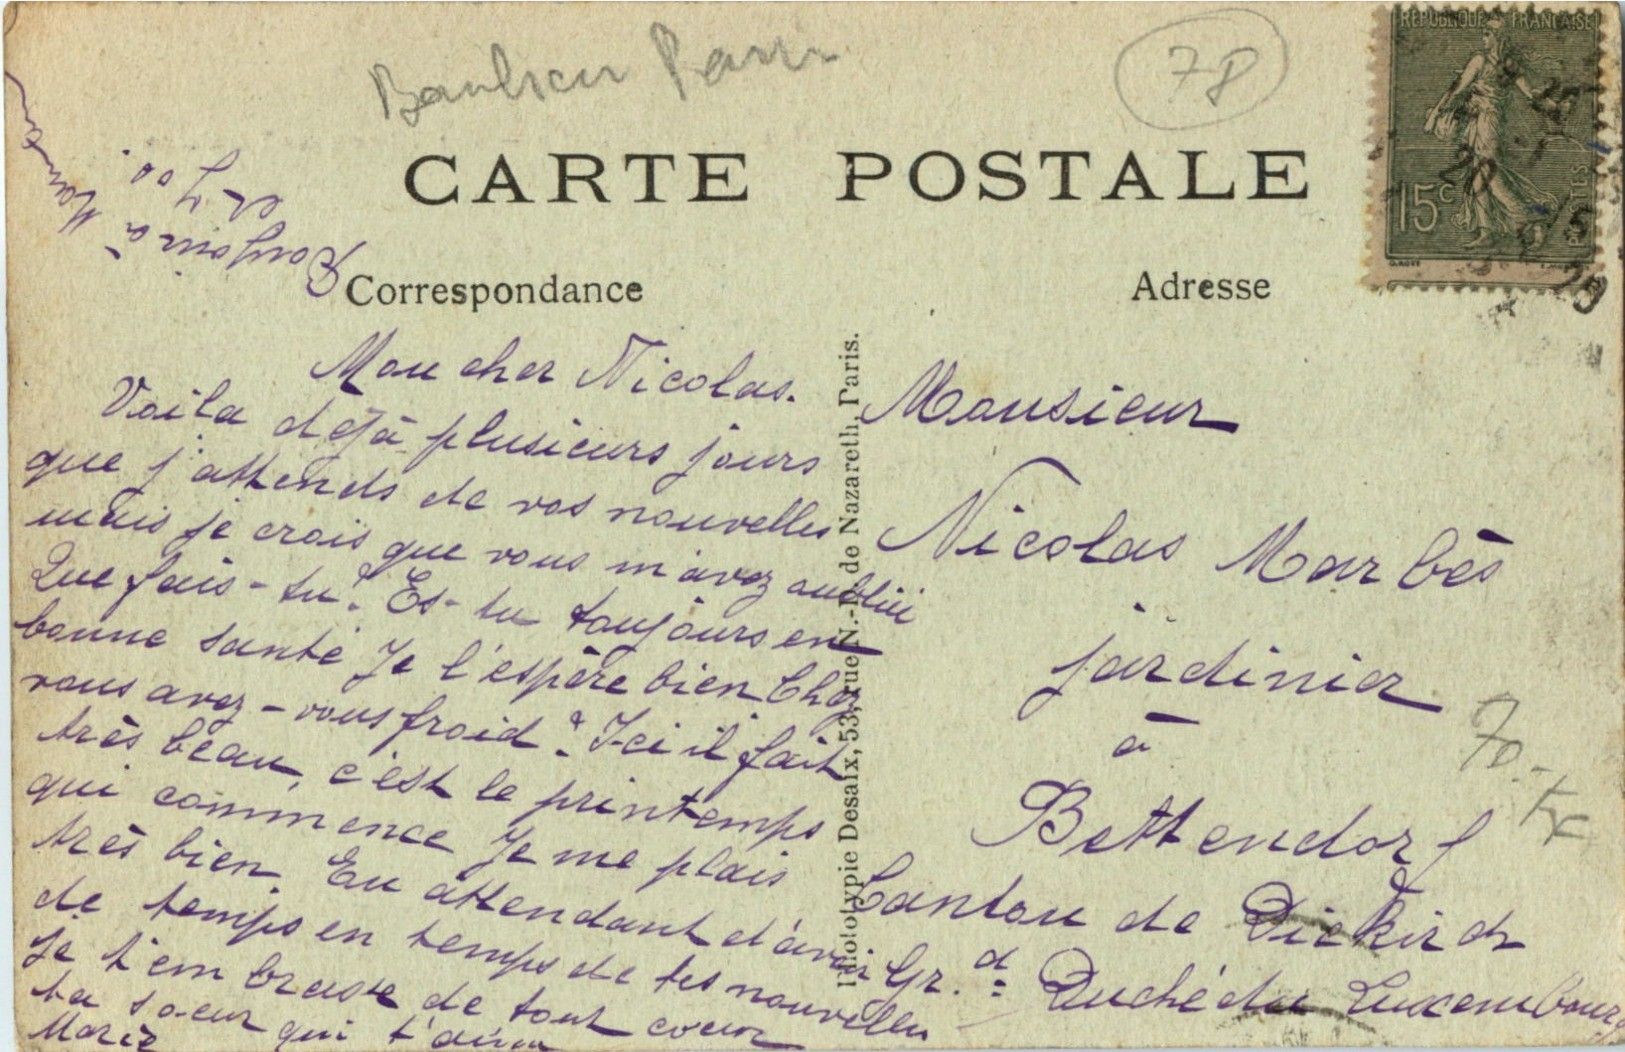 78
RÉPUBLIQUE FRANÇAISE
15c
POSTES
CARTE POSTALE
Correspondance
Adresse
Bonjour à Maman
et Joo.
Mon cher Nicolas.
Voila déjà plusieurs jours
que j'attends de vos nouvelles
mais je crois que vous m'avez oublié
Que fais-tu? Es-tu toujours en
bonne santé Je l'espère bien Chez
vous avez-vous froid? Ici il fait
très beau, c'est le printemps
qui commence Je me plais
très bien. En attendant d'avoir
de temps en temps de tes nouvelles
Je t'embrasse de tout coeur
ta soeur qui t'aime
Marie
Phototypie Desaix, 53, rue N.-D. de Nazareth, Paris.
Monsieur
Nicolas Marbès
jardinier
à
Bettendorf
Canton de Diekirch
Gr.d Duché du Luxembourg
70.-